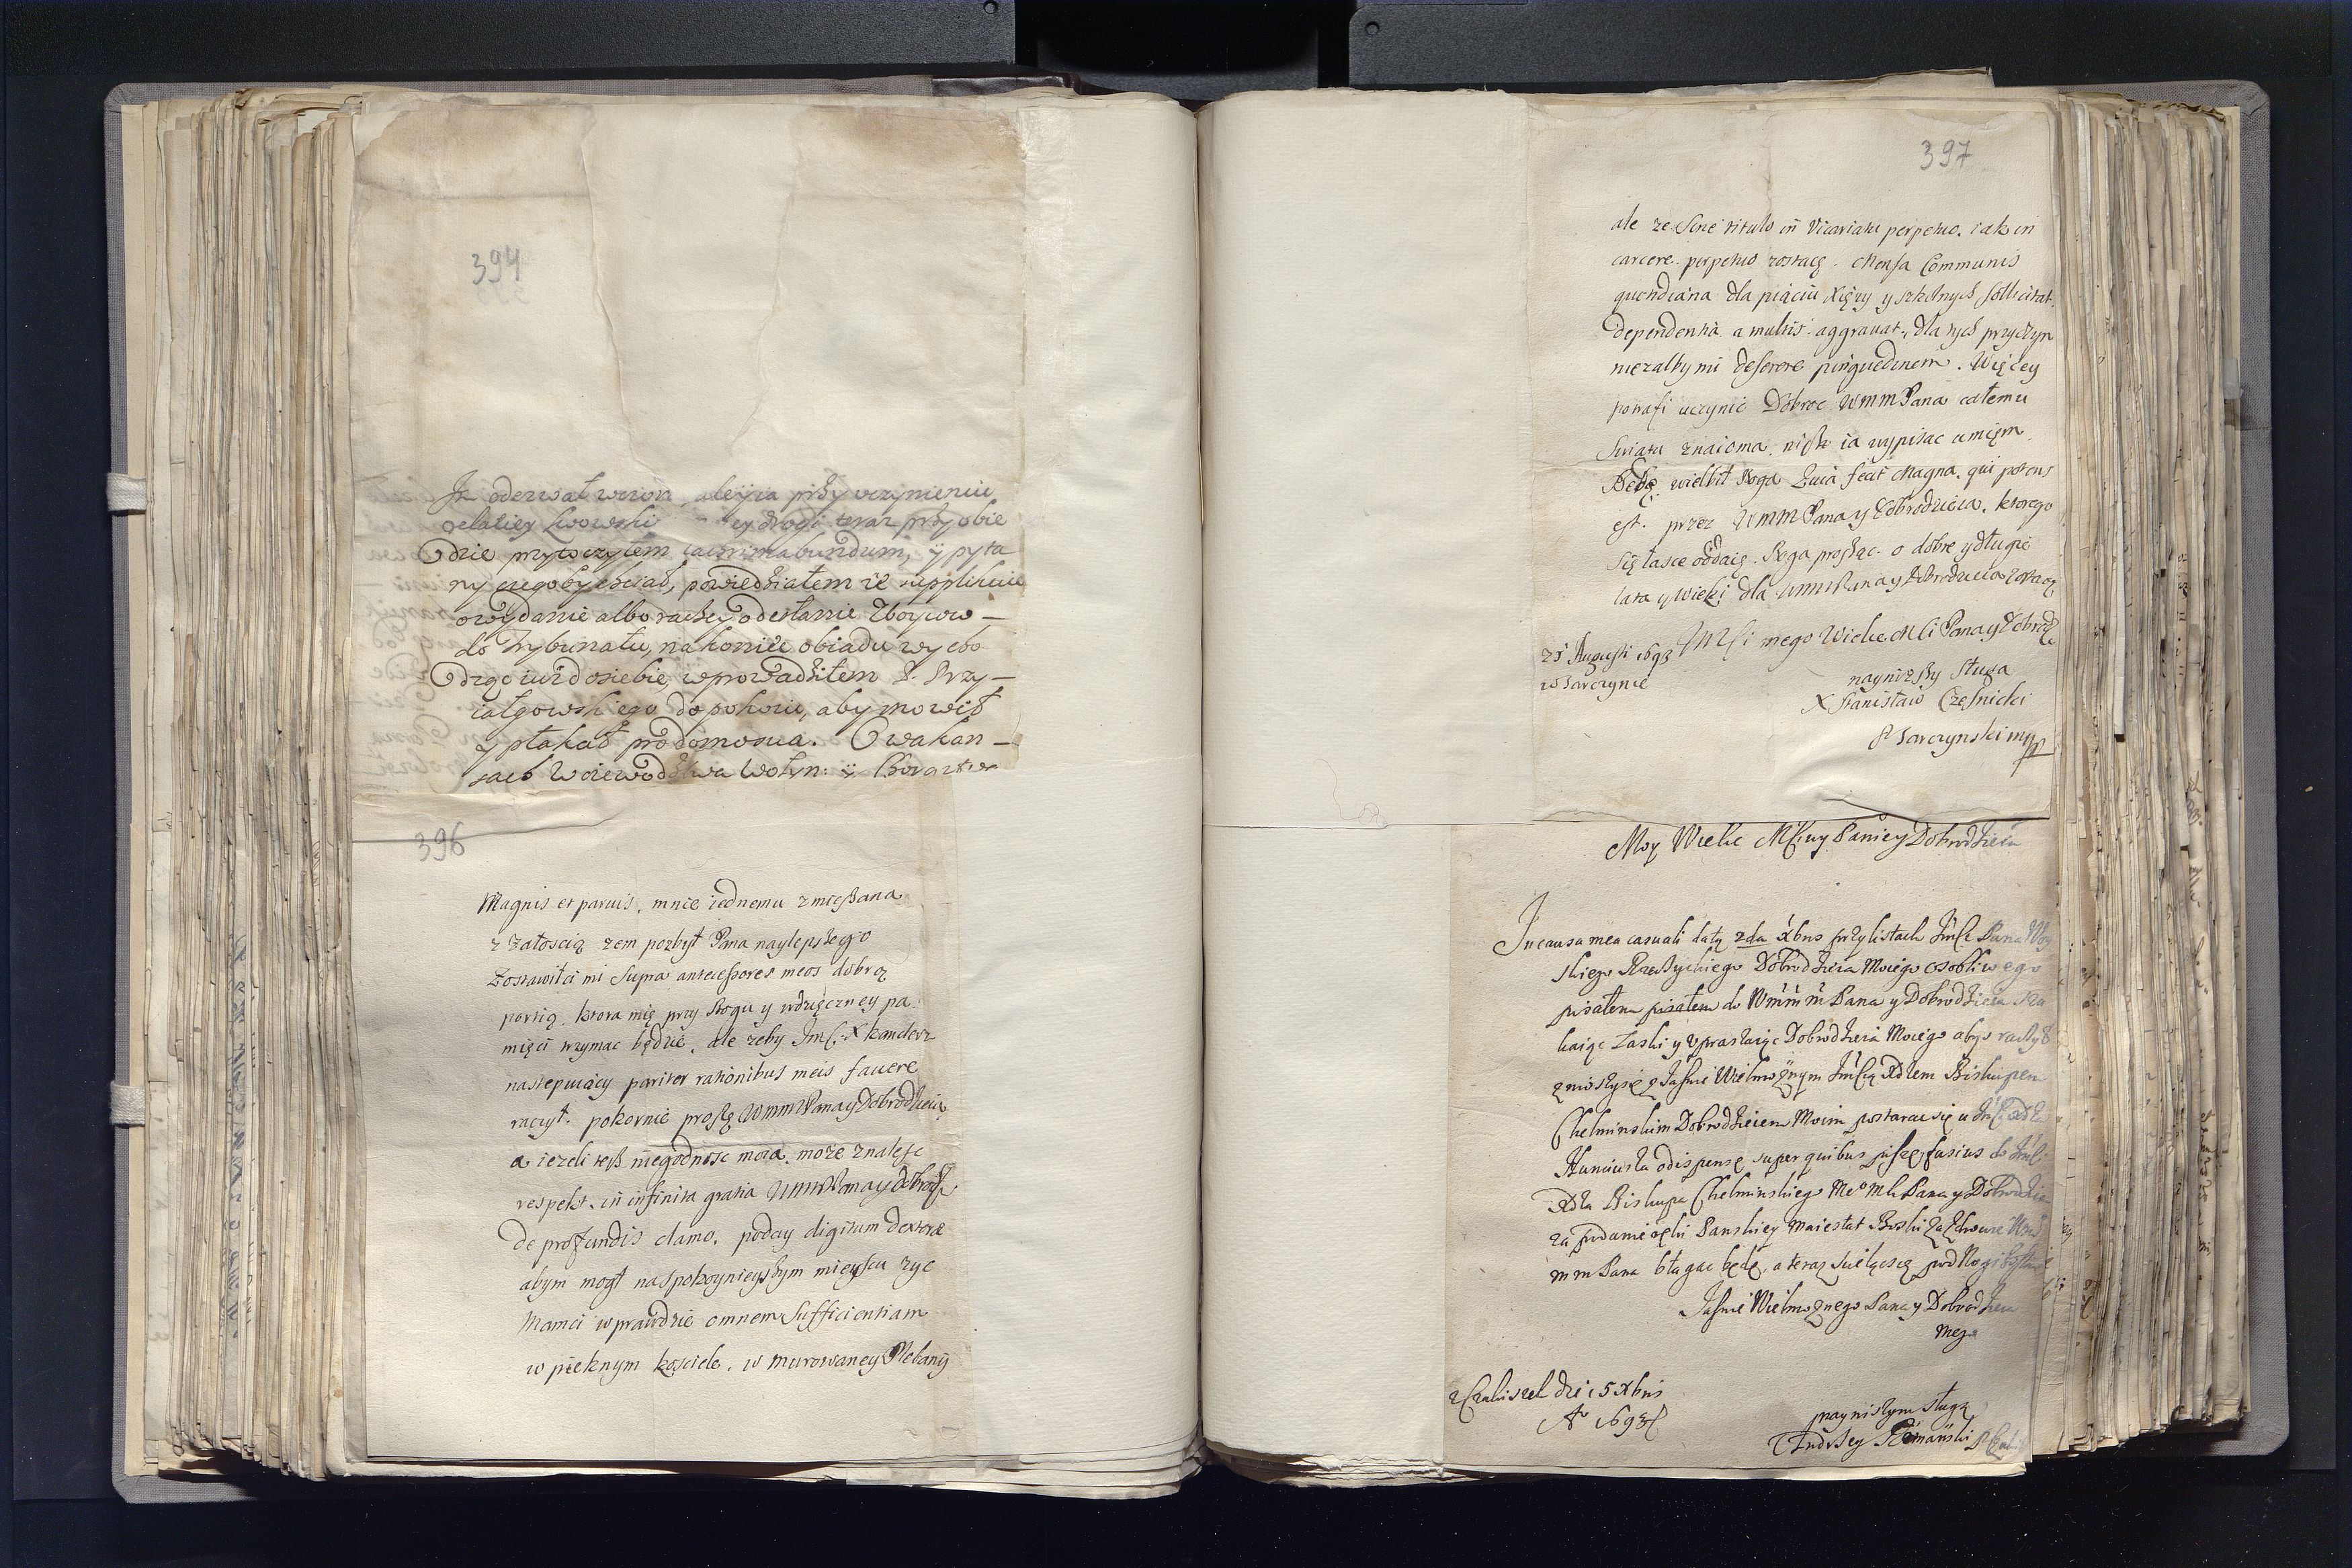 394
oderwał aleyia przy uczynieniu
relatiey Lwowski drogi teraz przy obie
dzie przytoczyłem lacrimabundum, ÿ pyta
ny czegoby chciał, powiedziałem iż supplikuie
o wydanie albo raczey odesłanie zboycow –
do Trybunału, na koniec obiadu wycho
dząc iuż do siebie, wprowadziłem P. Przy –
iałgowskiego do pokoiu, aby mowił
y płakał pro domo sua. O wakan –
sach Woiewodztwa Wołyn: ÿ
396
Magnis et paruis, mnie iednemu zmieszana
z żałoscią żem pozbył Pana naylepszego
Zostawiłci mi supra antecessores meos dobrą
portią, ktora mię przy Bogu y wdzięczney pa
mięci trzymac będzie, ale żeby Jmć X kanclerz
następuiący pariter rationibus meis fauere
raczył. pokornie proszę WMMPana y Dobrodzieia,
a ieżeli tesz niegodnosc moia może znalesc
respekt, in infinita gratia WMMPana y dobrodz.
De profundis clamo, poday digitum dexterae
abym mogł na spokoynieyszym mieyscu życ
Mamci wprawdzie omnem Sufficientiam
w pieknym kosciele, w murowaney Plebanij
397
ale że Sine titulo in Vicariatu perpetuo, iak in
carcere perpetuo zostaię. Mensa Communis
quotidiana dla piąciu Xięży y szkolnych sollicitat.
dependentia a multis aggrauat, dla tych przyczyn
nieżalby mi deserere pinguedinem. Więcey
potrafi uczynic Dobroc WMMPana całemu
Swiatu znaioma, niszli ia wypisac umięm.
Będę wielbił Boga Quia fecit Magna, qui potens
est. przez WMMPana y Dobrodzieia, ktorego
się łasce oddaię. Boga prosząc o dobre y długie
lata y wieki dla WMMPana y Dobrodzieia zostaię
WMści mego Wielce Mści Pana y Dobrodz.
25 Augusti 1693
w Sarczynie
nayniższy sługa
X Stanisław Czesnicki
P Sarczynski mpp
Moy Wielce Mściwy Panie y Dobrodzieiu
In causa mea casuali datą 2da Xbris przy listach Jmści Pana Woy
skiego Rzeczyckiego Dobrodzieia Moiego osobliwego
pisałem pisałem do WMM Pana y Dobrodzieia szu
kaiąc Łaski y Vpraszaiąc Dobrodzieia Moiego abys raczył
zniosszy się z Jasnie Wielmożnym Jmścią Xdzem Biskupem
Chelminskim Dobrodzieiem Moim postarac się u Jmści Xdza
Nunciusza o dispensę super quibus piszę fusius do Jmści
Xdza Biskupa Chelminskiego Meo Mści Pana y Dobrodzieia
za podanie ręki Panskiey Maiestat Boski za zdrowie WMści
MM Pana błagac będę, a teraz scieląc się pod Nogi
Jasnie Wielmożnego Pana y Dobrodzieia
Mego
dzie 15 Xbris
A 1693
nayniszym sługą
Andrzey